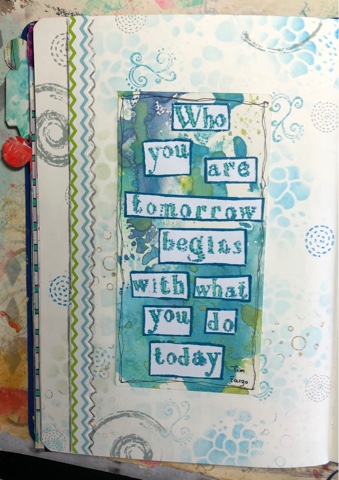 Who
you are
tomorrow
begins
with what
you do
today
Tim
Fargo